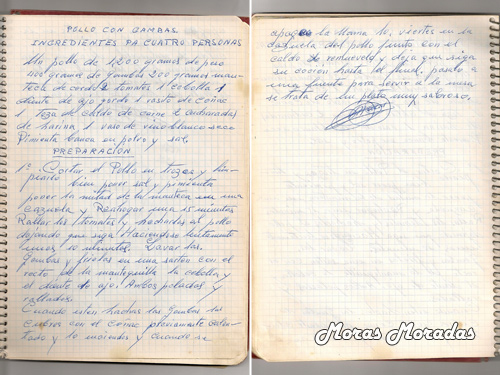 POLLO CON GAMBAS.
INGREDIENTES PA CUATRO PERSONAS
Un pollo de 1,200 gramos de peso
400 gramos de gambas 200 gramos man-
teca de cerdo 2 tomates 1 cebolla 1
diente de ajo gordo 1 vasito de coñac
1 taza de caldo de carne 2 cucharadas
de harina 1 vaso de vino blanco seco
Pimienta blanca en polvo y sal.
PREPARACION
1º Cortar el Pollo en trozos y lim-
piarlo bien poner sal y pimienta
poner la mitad de la manteca en una
cazuela y Rehogar unos 15 minutos
Rallar los tomates y hecharlos al pollo
dejando que siga Haciendose lentamente
unos 10 minutos. Lavar las
Gambas y freirlas en una sarten con el
resto de la mantequilla la cebolla y
el diente de ajo. Ambos pelados y
rallados.
Cuando esten hechas las gambas las
con el coñac previamente calen-
tado y lo enciendes y cuando se
apague la llama lo, viertes en la
cazuela del pollo junto con el
caldo de removerlo y deja que siga
su coccion hasta el final, pasalo a
una fuente para servir a la mesa
se trata de un plato muy sabroso.
Moras Moradas